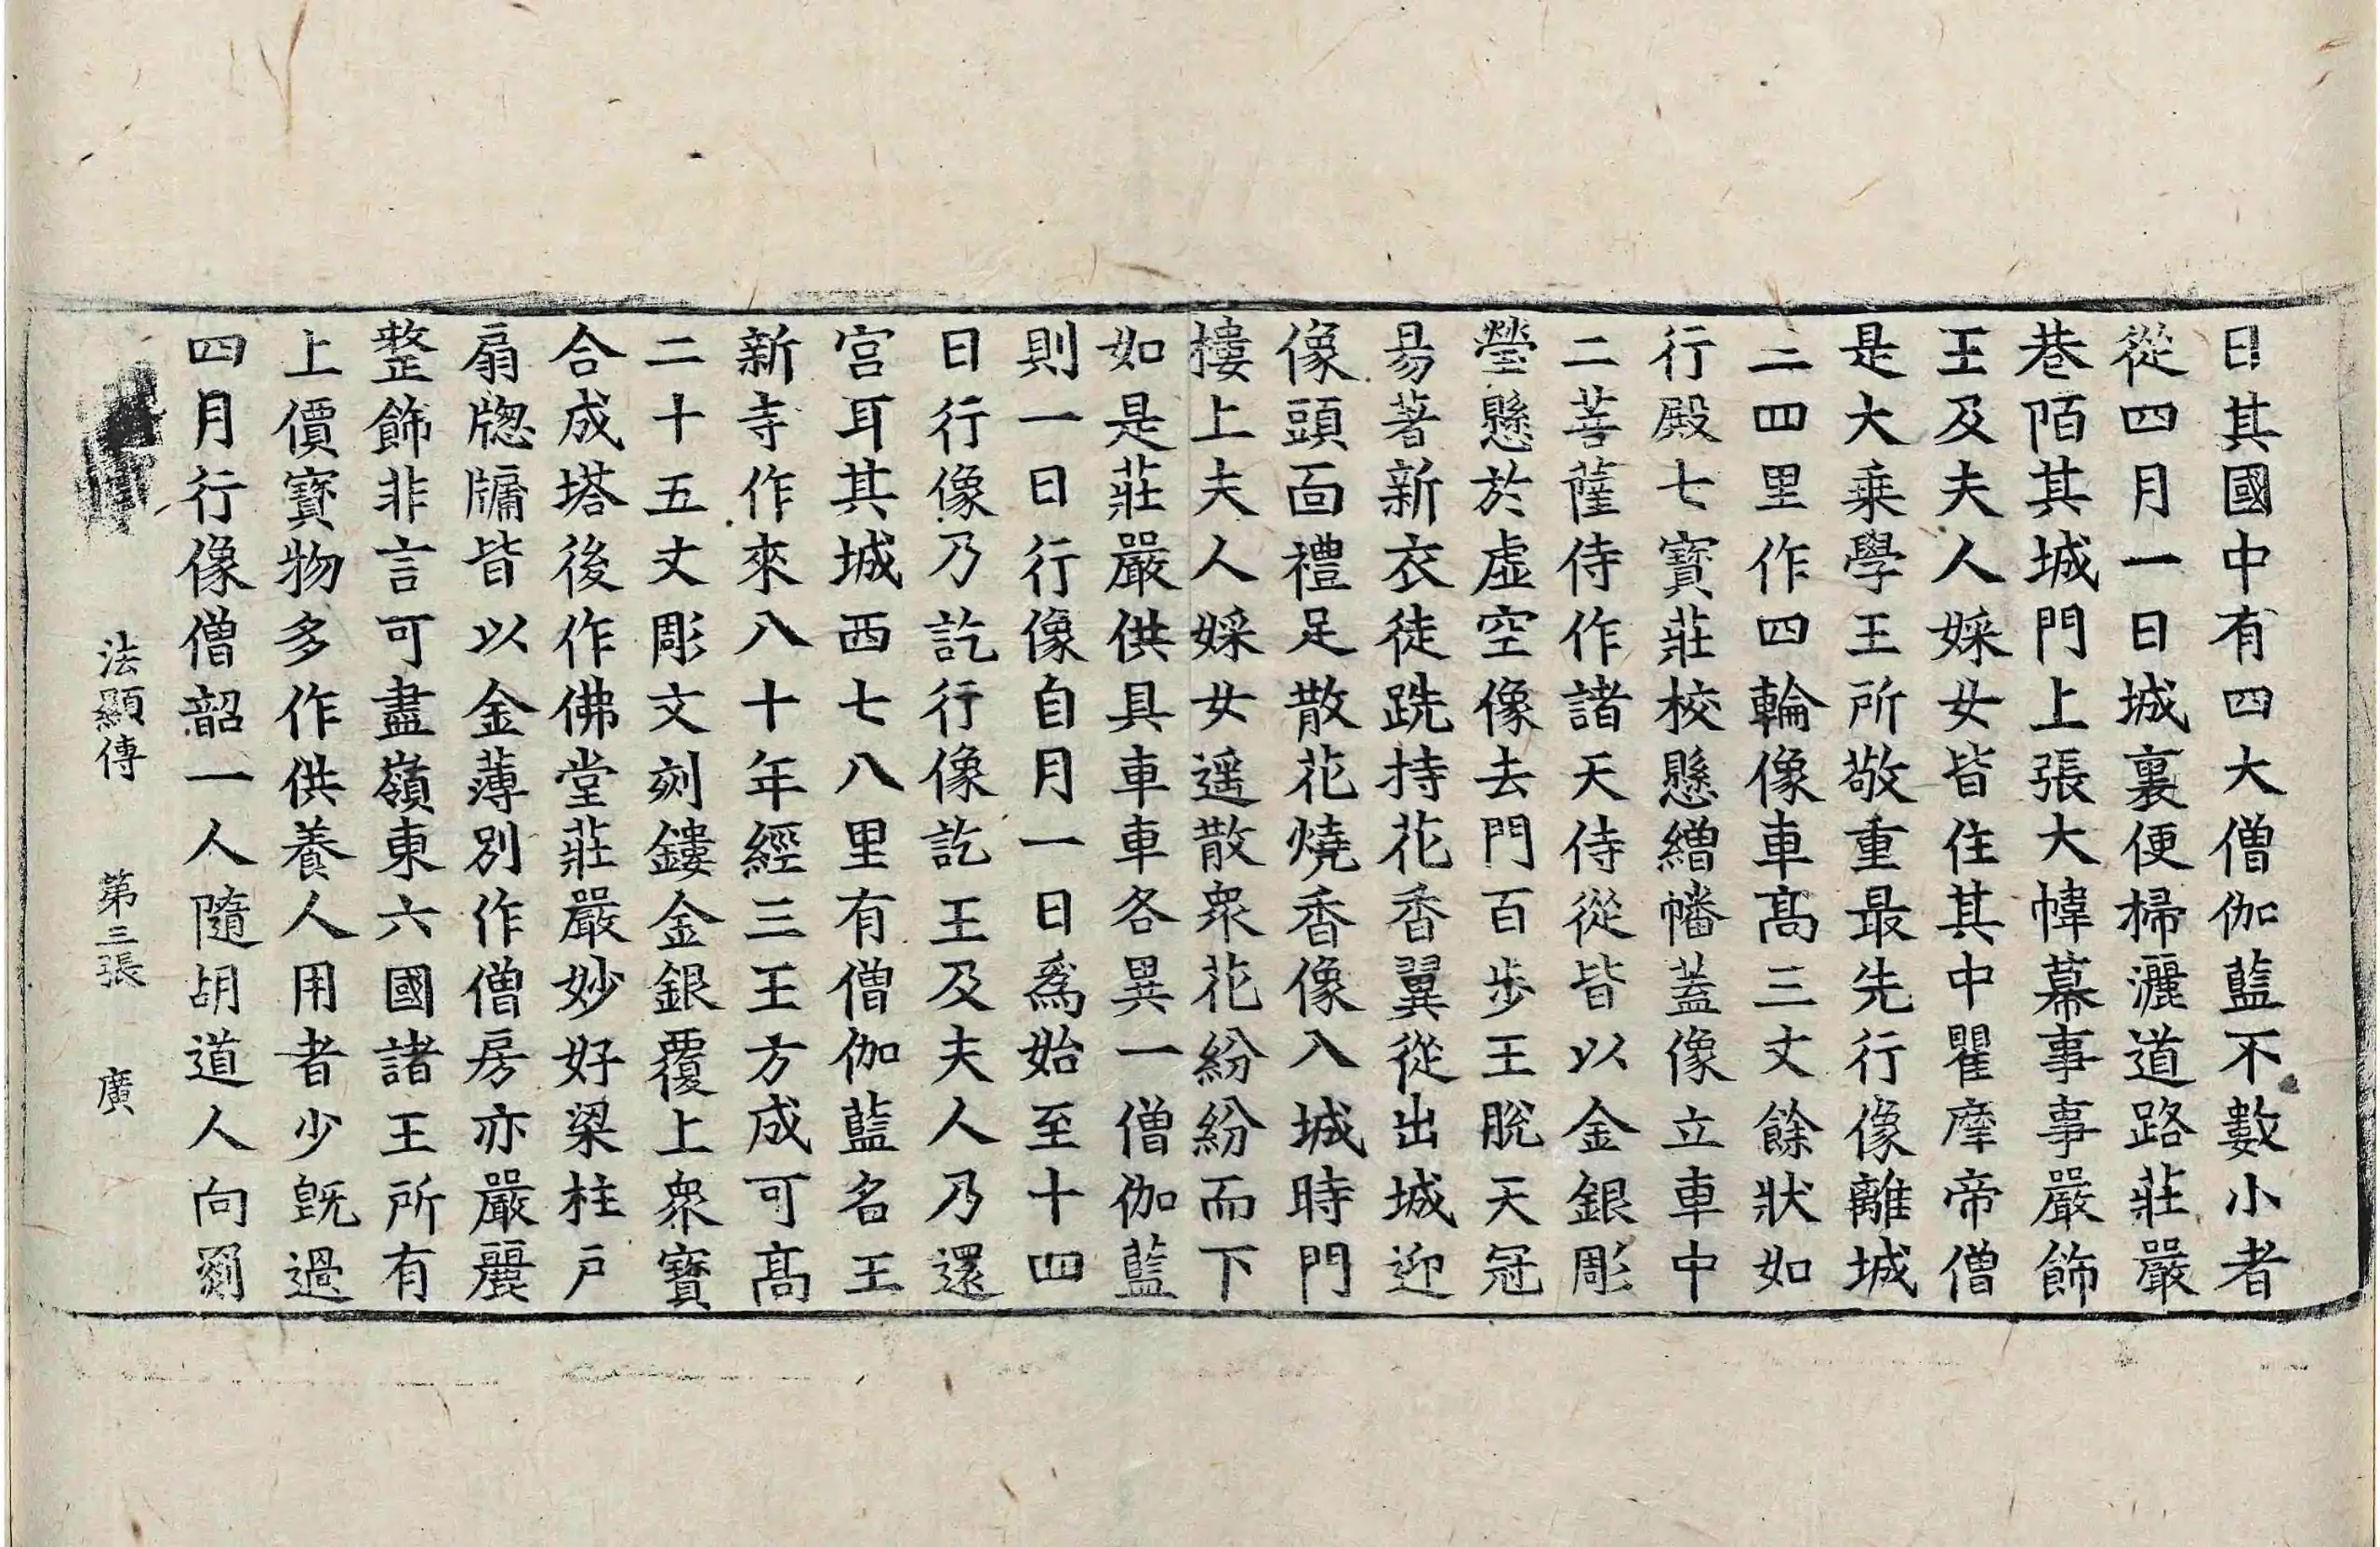 日其國中有四大僧伽藍不數小者
從四月一日城裏便掃灑道路莊嚴
巷陌其城門上張大幃幕事事嚴飾
王及夫人婇女皆住其中瞿摩帝僧
是大乘學王所敬重最先行像離城
三四里作四輪像車高三丈餘狀如
行殿七寶莊校懸繒幡蓋像立車中
二菩薩侍作諸天侍從皆以金銀彫
瑩懸於虛空像去門百步王脫天冠
易著新衣徒跣持花香翼從出城迎
像頭面禮足散花燒香像入城時門
樓上夫人婇女遥散衆花紛紛而下
如是莊嚴供具車車各異一僧伽藍
則一日行像自月一日爲始至十四
日行像乃訖行像訖王及夫人乃還
宮耳其城西七八里有僧伽藍名王
新寺作來八十年經三王方成可髙
二十五丈彫文刻鏤金銀覆上衆寶
合成塔後作佛堂莊嚴妙好梁柱戶
扇牎牖皆以金薄別作僧房亦嚴麗
整飾非言可盡嶺東六國諸王所有
上價寶物多作供養人用者少旣過
四月行像僧韶一人隨胡道人向罽
法顯傳 第三張 廣